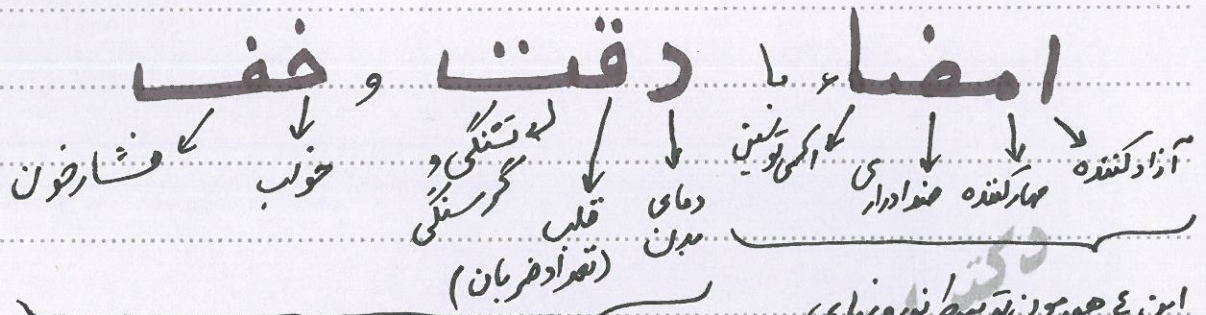 امضاء با دقت و خف
آزادکننده مهارکننده ضدادراری اکسی‌توسین دمای بدن قلب (تعداد ضربان) تشنگی و گرسنگی خواب فشارخون
این ٤ هورمون توسط نورون‌های